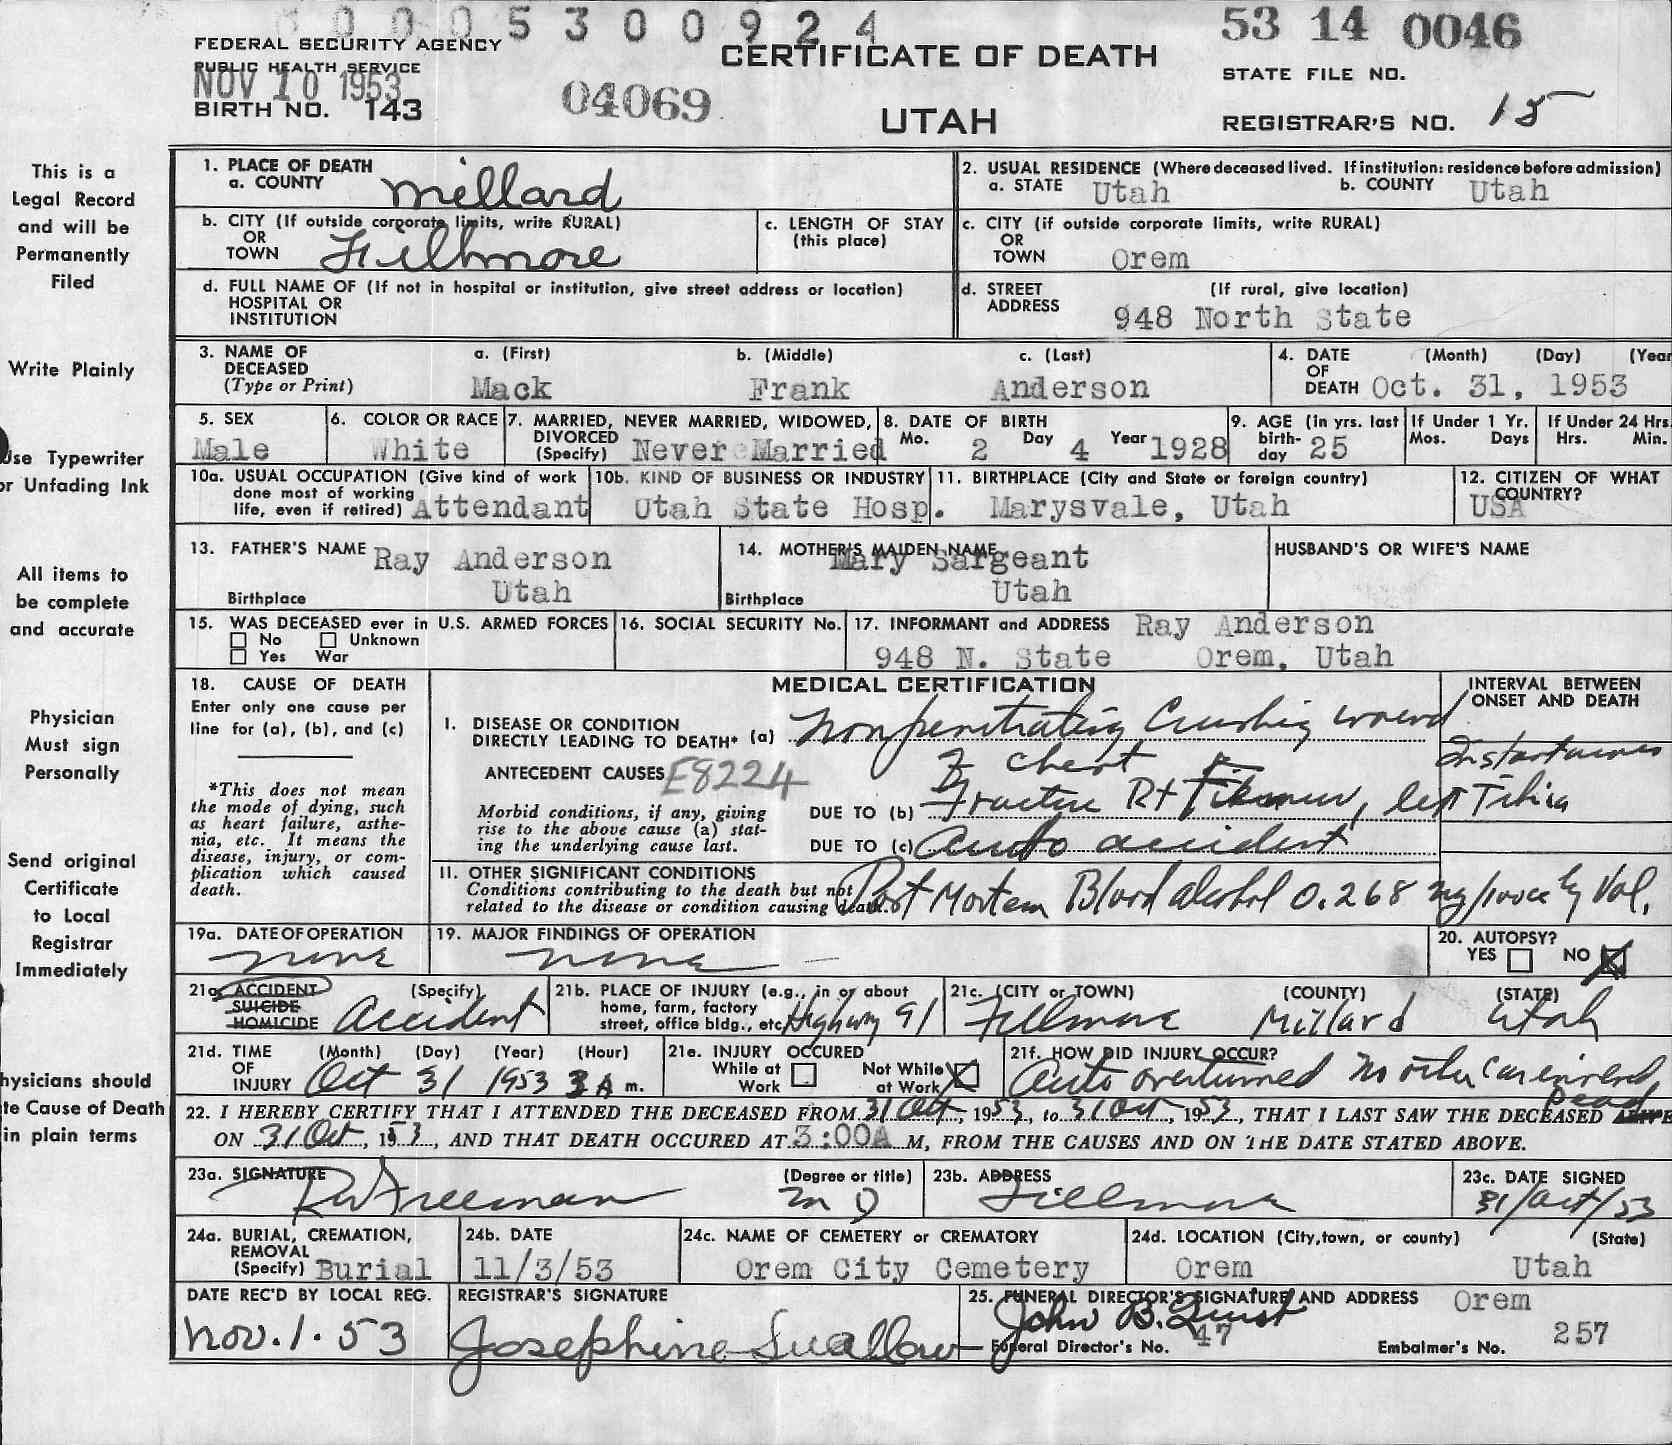 0 0 0 5 3 0 0 9 2 4
53 14 0046
FEDERAL SECURITY AGENCY
PUBLIC HEALTH SERVICE
NOV 10 1953
BIRTH NO. 143
04069
CERTIFICATE OF DEATH
UTAH
STATE FILE NO.
REGISTRAR'S NO. 15
This is a
Legal Record
and will be
Permanently
Filed
Write Plainly
Use Typewriter
or Unfading Ink
All items to
be complete
and accurate
Physician
Must sign
Personally
Send original
Certificate
to Local
Registrar
Immediately
hysicians should
te Cause of Death
in plain terms
1. PLACE OF DEATH
a. COUNTY Millard
2. USUAL RESIDENCE (Where deceased lived. If institution: residence before admission)
a. STATE Utah b. COUNTY Utah
b. CITY (If outside corporate limits, write RURAL)
OR
TOWN Fillmore
c. LENGTH OF STAY
(this place)
c. CITY (if outside corporate limits, write RURAL)
OR
TOWN Orem
d. FULL NAME OF (If not in hospital or institution, give street address or location)
HOSPITAL OR
INSTITUTION
d. STREET (If rural, give location)
ADDRESS 948 North State
3. NAME OF a. (First) b. (Middle) c. (Last)
DECEASED
(Type or Print) Mack Frank Anderson
4. DATE (Month) (Day) (Year
OF
DEATH Oct. 31, 1953
5. SEX
Male
6. COLOR OR RACE
White
7. MARRIED, NEVER MARRIED, WIDOWED,
DIVORCED
(Specify) Never Married
8. DATE OF BIRTH
Mo. 2 Day 4 Year 1928
9. AGE (in yrs. last
birth-
day 25
If Under 1 Yr.
Mos. Days
If Under 24 Hrs
Hrs. Min.
10a. USUAL OCCUPATION (Give kind of work
done most of working
life, even if retired) Attendant
10b. KIND OF BUSINESS OR INDUSTRY
Utah State Hosp.
11. BIRTHPLACE (City and State or foreign country)
Marysvale, Utah
12. CITIZEN OF WHAT
COUNTRY?
USA
13. FATHER'S NAME Ray Anderson
Birthplace Utah
14. MOTHER'S MAIDEN NAME
Mary Sargeant
Birthplace Utah
HUSBAND'S OR WIFE'S NAME
15. WAS DECEASED ever in U.S. ARMED FORCES
No Unknown
Yes War
16. SOCIAL SECURITY No.
17. INFORMANT and ADDRESS Ray Anderson
948 N. State Orem, Utah
18. CAUSE OF DEATH
Enter only one cause per
line for (a), (b), and (c)
*This does not mean
the mode of dying, such
as heart failure, asthe-
nia, etc. It means the
disease, injury, or com-
plication which caused
death.
MEDICAL CERTIFICATION
INTERVAL BETWEEN
ONSET AND DEATH
I. DISEASE OR CONDITION
DIRECTLY LEADING TO DEATH* (a) Nonpenetrating Crushing wound
of chest
Instantaneous
ANTECEDENT CAUSES E8224
Morbid conditions, if any, giving
rise to the above cause (a) stat-
ing the underlying cause last.
DUE TO (b) Fracture Rt Femur, left Tibia
DUE TO (c) Auto accident
11. OTHER SIGNIFICANT CONDITIONS
Conditions contributing to the death but not
related to the disease or condition causing death. Post Mortem Blood alcohol 0.268 mg/100cc by Vol.
19a. DATE OF OPERATION
none
19. MAJOR FINDINGS OF OPERATION
none
20. AUTOPSY?
YES NO X
21a. ACCIDENT (Specify)
SUICIDE
HOMICIDE Accident
21b. PLACE OF INJURY (e.g., in or about
home, farm, factory
street, office bldg., etc Highway 91
21c. (CITY or TOWN) (COUNTY) (STATE)
Fillmore Millard Utah
21d. TIME (Month) (Day) (Year) (Hour)
OF
INJURY Oct 31 1953 3A m.
21e. INJURY OCCURED
While at Work
Not While at Work X
21f. HOW DID INJURY OCCUR?
Auto overturned no other car involved
22. I HEREBY CERTIFY THAT I ATTENDED THE DECEASED FROM 31 Oct, 1953, to 31 Oct, 1953, THAT I LAST SAW THE DECEASED ALIVE Dead
ON 31 Oct, 1953, AND THAT DEATH OCCURED AT 3:00A M, FROM THE CAUSES AND ON THE DATE STATED ABOVE.
23a. SIGNATURE (Degree or title)
RW Freeman MD
23b. ADDRESS
Fillmore
23c. DATE SIGNED
31/Oct/53
24a. BURIAL, CREMATION,
REMOVAL
(Specify) Burial
24b. DATE
11/3/53
24c. NAME OF CEMETERY or CREMATORY
Orem City Cemetery
24d. LOCATION (City, town, or county) (State)
Orem Utah
DATE REC'D BY LOCAL REG.
Nov. 1. 53
REGISTRAR'S SIGNATURE
Josephine Swallow
25. FUNERAL DIRECTOR'S SIGNATURE AND ADDRESS Orem
John B.
Funeral Director's No. 47 Embalmer's No. 257